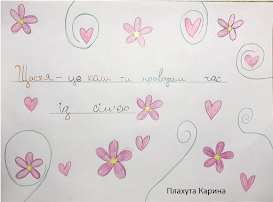 Щастя – це коли ти проводиш час
із сім'єю
Плахута Карина